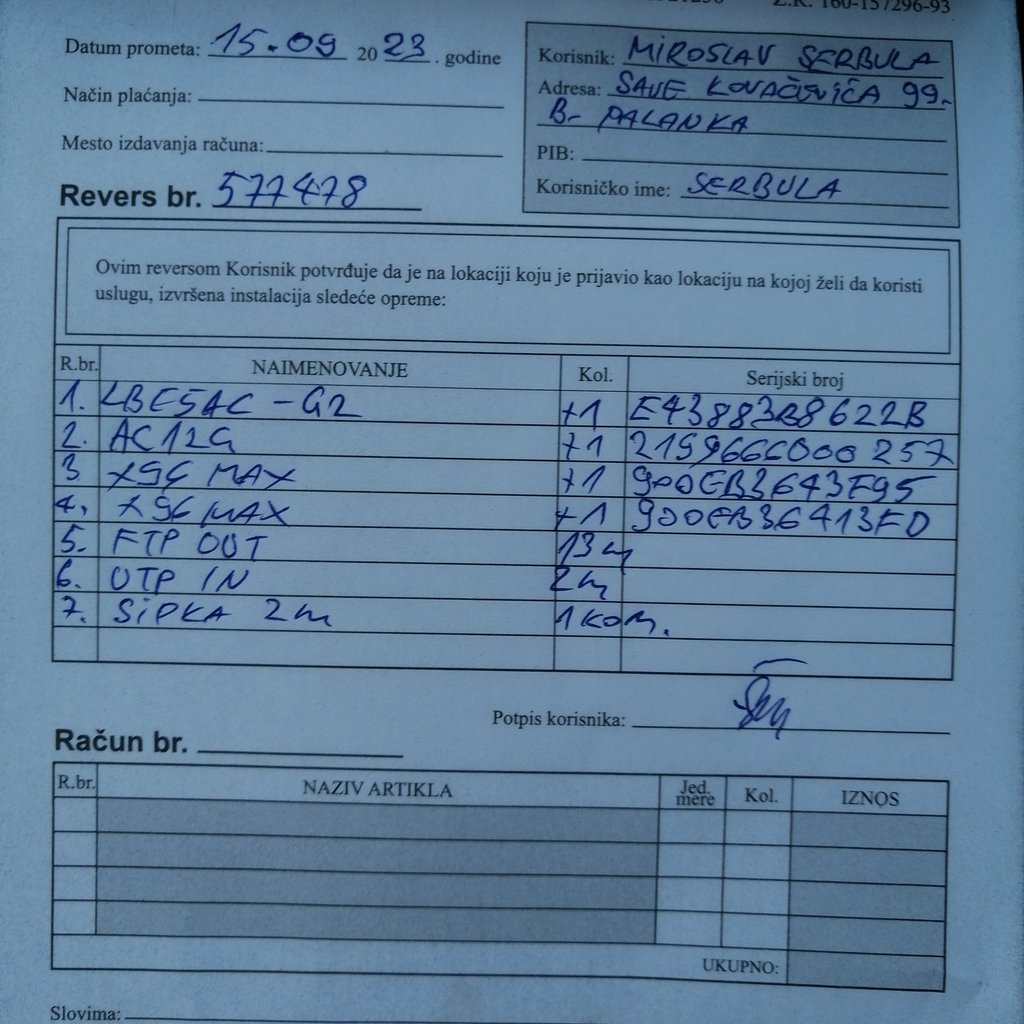 Ž.R. 160-157296-93
Datum prometa: 15.09 2023. godine
Način plaćanja:
Mesto izdavanja računa:
Revers br. 577478
Korisnik: MIROSLAV SERBULA
Adresa: SAVE KOVAČEVIĆA 99.
B- PALANKA
PIB:
Korisničko ime: SERBULA
Ovim reversom Korisnik potvrđuje da je na lokaciji koju je prijavio kao lokaciju na kojoj želi da koristi
uslugu, izvršena instalacija sledeće opreme:
R.br. NAIMENOVANJE Kol. Serijski broj
1. LBE5AC-G2 +1 E43883B8622B
2. AC12G +1 2199666000257
3 X96 MAX +1 900EB3643F95
4. X96 MAX +1 900EB36413FD
5. FTP OUT 13m
6. UTP IN 2m
7. SIPKA 2m 1 KOM.
Potpis korisnika:
Račun br.
R.br. NAZIV ARTIKLA Jed. mere Kol. IZNOS
UKUPNO:
Slovima: